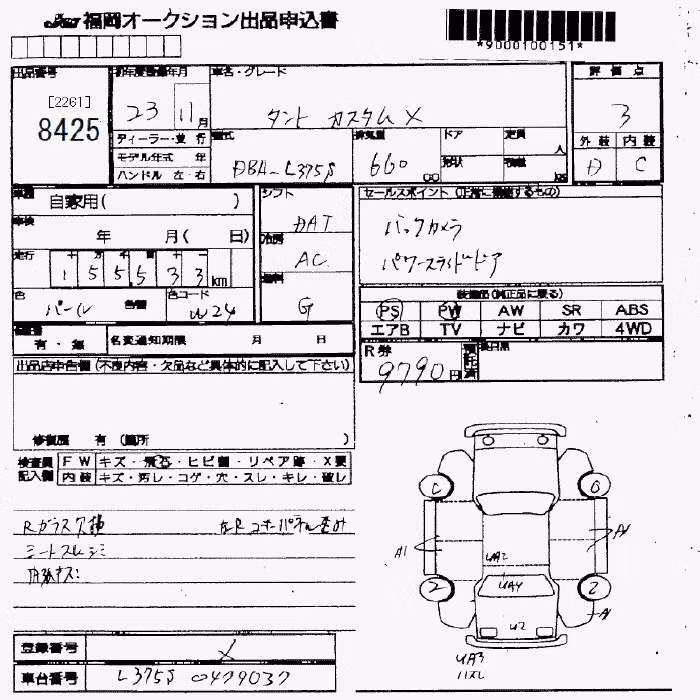 福岡オークション出品申込書
*9000100151*
出品番号 初年度登録年月 車名・グレード 評価点
[2261]
8425
23 11月
タント カスタムX
3
外装 内装
D C
ディーラー・並行
モデル年式 年
ハンドル 左・右
型式 排気量 ドア 定員 人
DBA-L375S 660 cc 形状 積載 kg
車歴 自家用( )
シフト
DAT
セールスポイント(正常に機能するもの)
バックカメラ
パワースライドドア
車検 年 月( 日)
冷房
AC
走行 十万千百十一
155,533km
燃料
G
色 パール 色替 色コード W24
装備品(純正品に限る)
PS PW AW SR ABS
エアB TV ナビ カワ 4WD
有・無 名変通知期限 月 日
R券 9790円 預託済
出品店申告欄(不良内容・欠品など具体的に記入して下さい)
修復歴 有(箇所 )
検査員記入欄
FW キズ・飛石・ヒビ割・リペア跡・X要
内装 キズ・汚レ・コゲ・穴・スレ・キレ・破レ
Rガラス欠傷
シートスレシミ
内張キズ
A1
UA2
UA4
U2
UA3
ハズレ
登録番号 X
車台番号 L375S 0479037